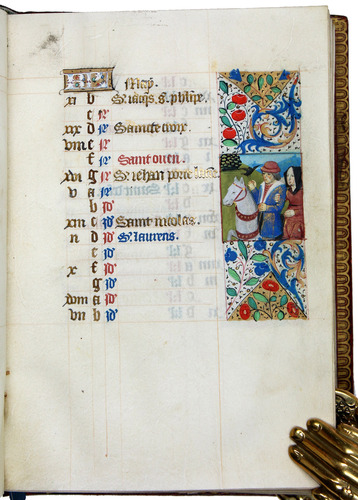 May.
xi b S. iaqs. s. phlipe.
c
xix d Saincte croix.
viii e
f Saint ouen.
xvi g S. iehan porte latie
v a
b id
xiii c id Saint nicolas.
ii d id S. laurens.
e id
x f id
g id
xviii a id
vii b id